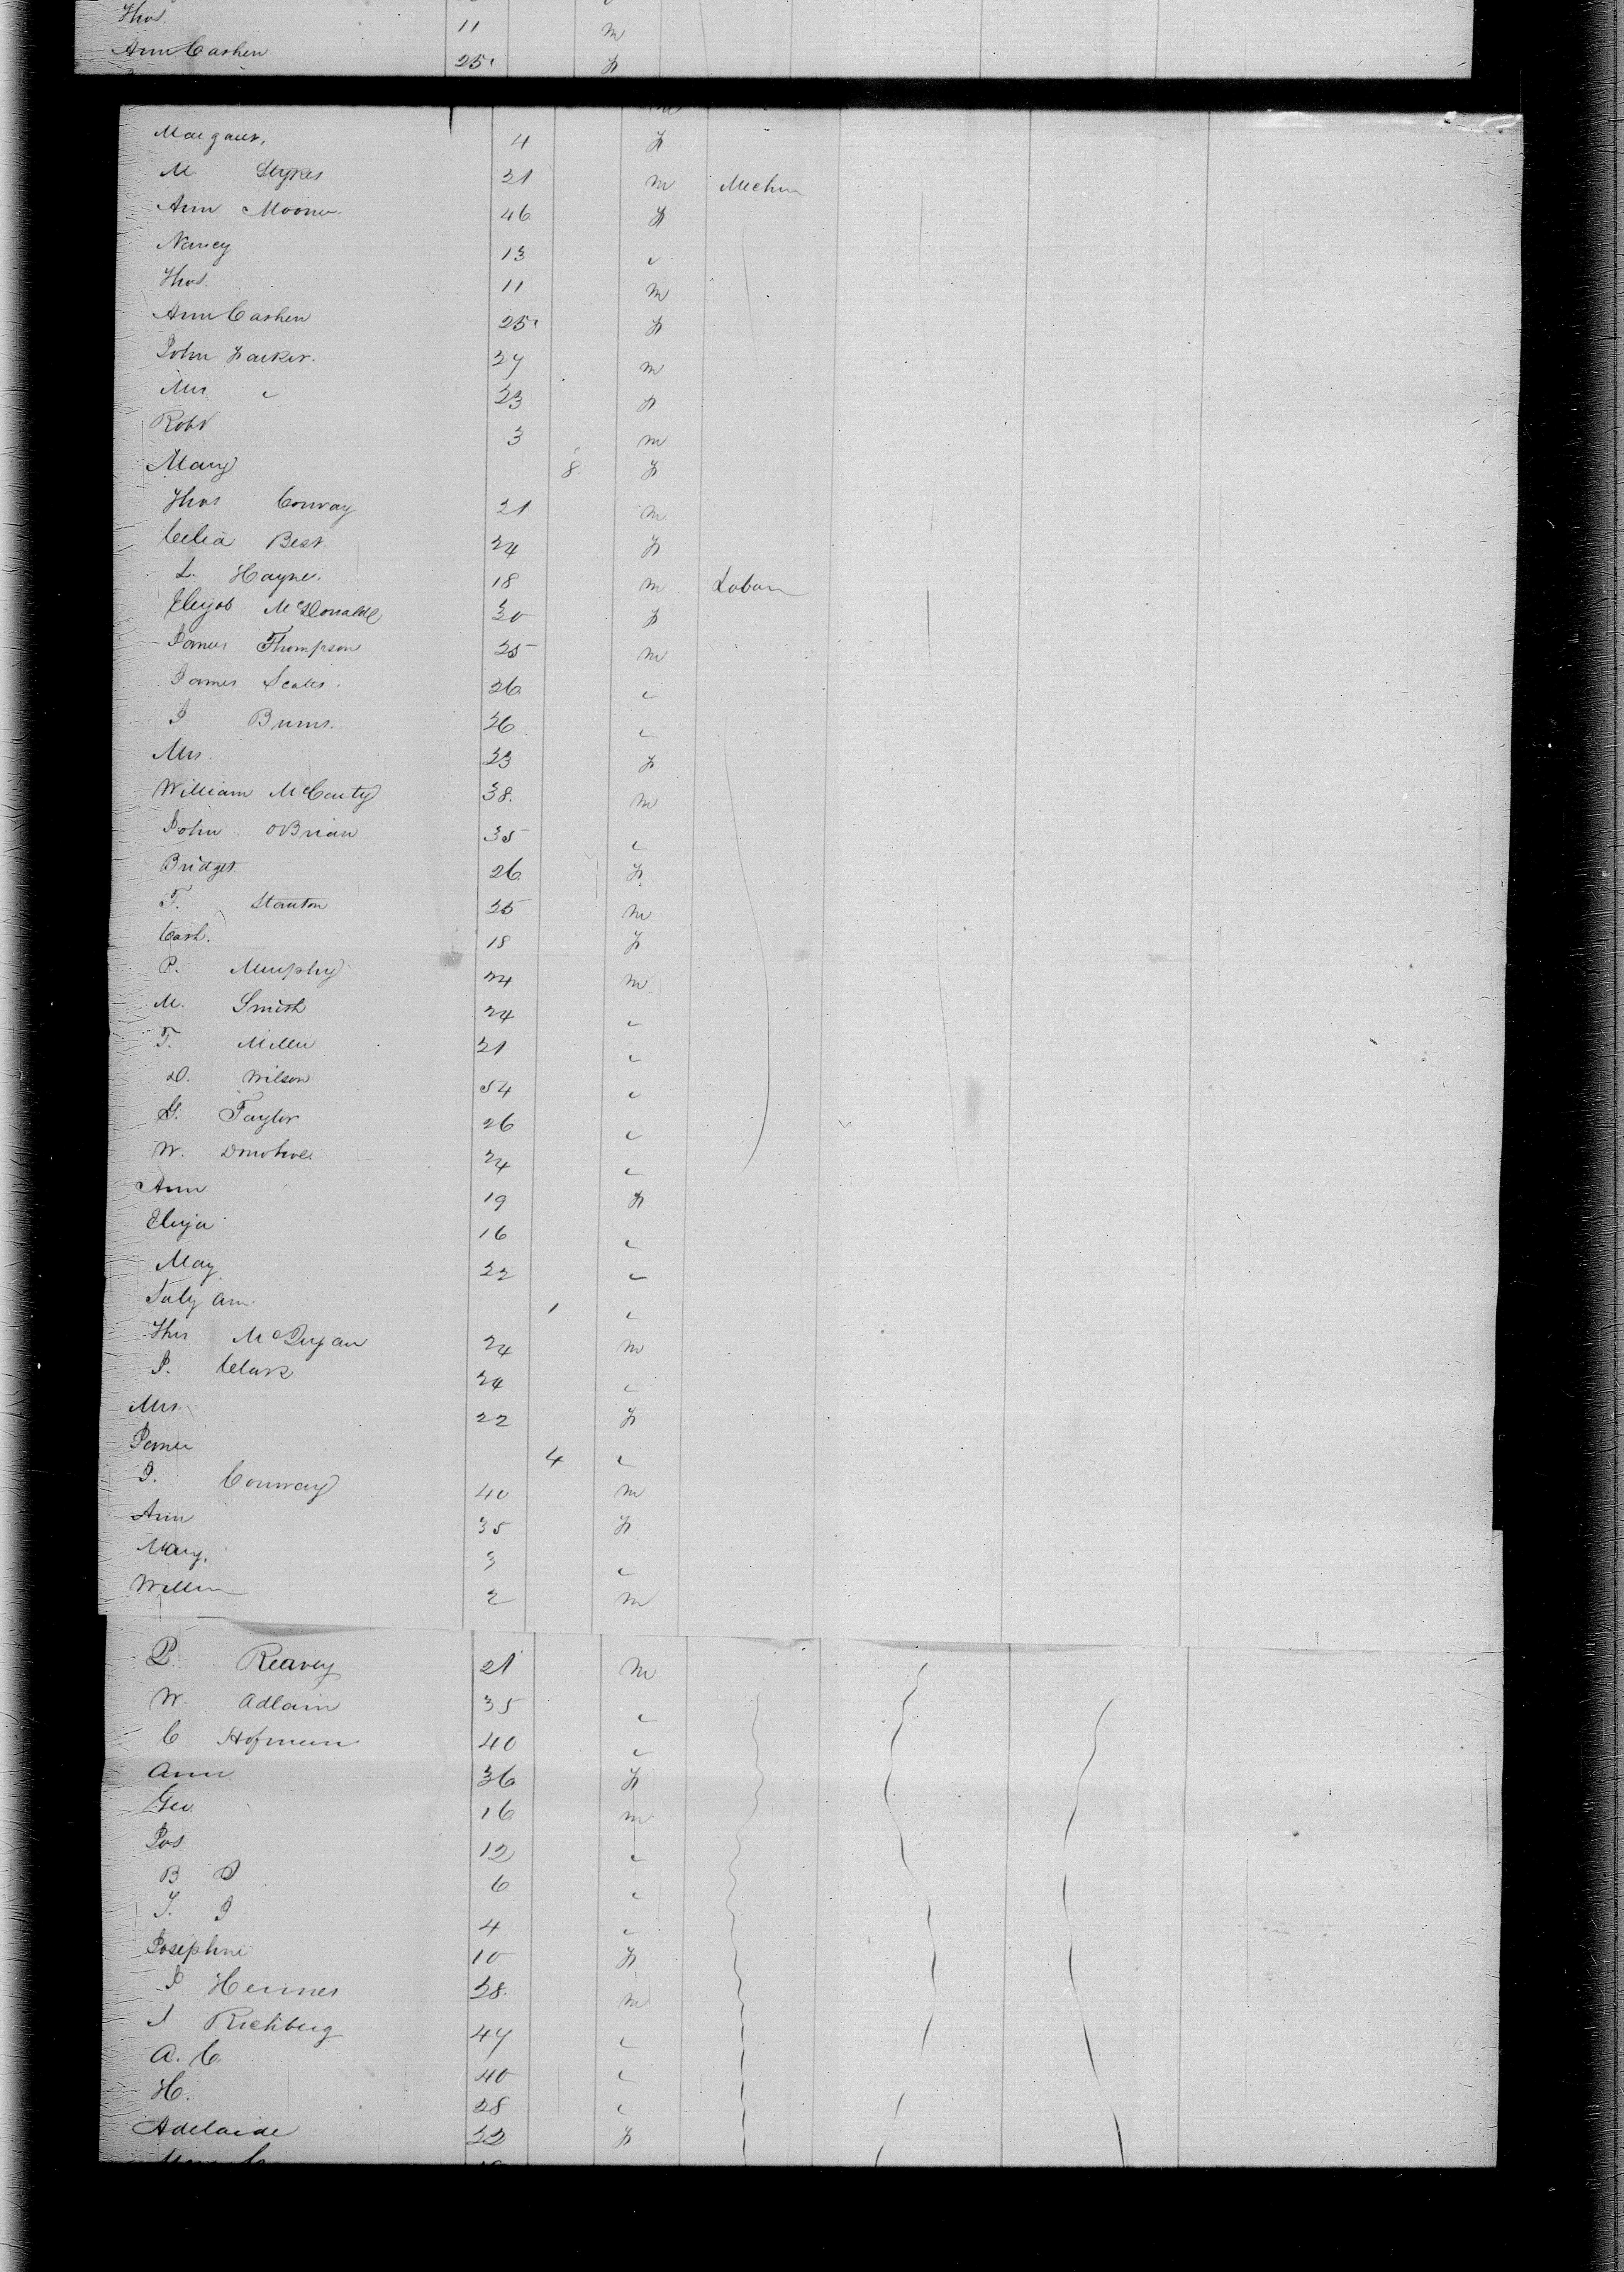 Thos. 11 m
Ann Cashen 25 f
Margaret, 4 f
M Stykes 21 m Mechn
Ann Moone 46 f
Nancy 13 "
Thos. 11 m
Ann Cashen 25 f
John Farker. 27 m
Mrs " 23 f
Robt 3 m
Mary 8 f
Thos Conway 21 m
Celia Best 24 f
L. Hayne. 18 m Labour
Elizab McDonald 30 f
James Thompson 25 m
James Scales. 26 "
J Burns. 26 "
Mrs. 23 f
William McCarty 38. m
John OBrian 35 "
Bridget 26 f
T. Stanton 25 m
Cath. 18 f
P. Murphy 24 m
M. Smith 24 "
T. Miller 21 "
D. Wilson 54 "
G. Taylor 26 "
W. Donohoe 24 "
Ann 19 f
Eliza 16 "
May 22 "
ann 1 "
Thos 24 m
P. Clark 24 "
Mrs. 22 f
James 4 "
J. Conway 40 m
Ann 35 f
Mary. 3 "
Willm 2 m
P. Reavey 21 m
W. Adlain 35 "
C Hofmeun 40 "
Ann 36 f
Geo 16 m
Jos 12 "
B J 6 "
T. J 4 "
Josephine 10 f
J Hermes 28. m
J Richberg 47 "
A. C. 40 "
H. 28 "
Adelaide 22 f